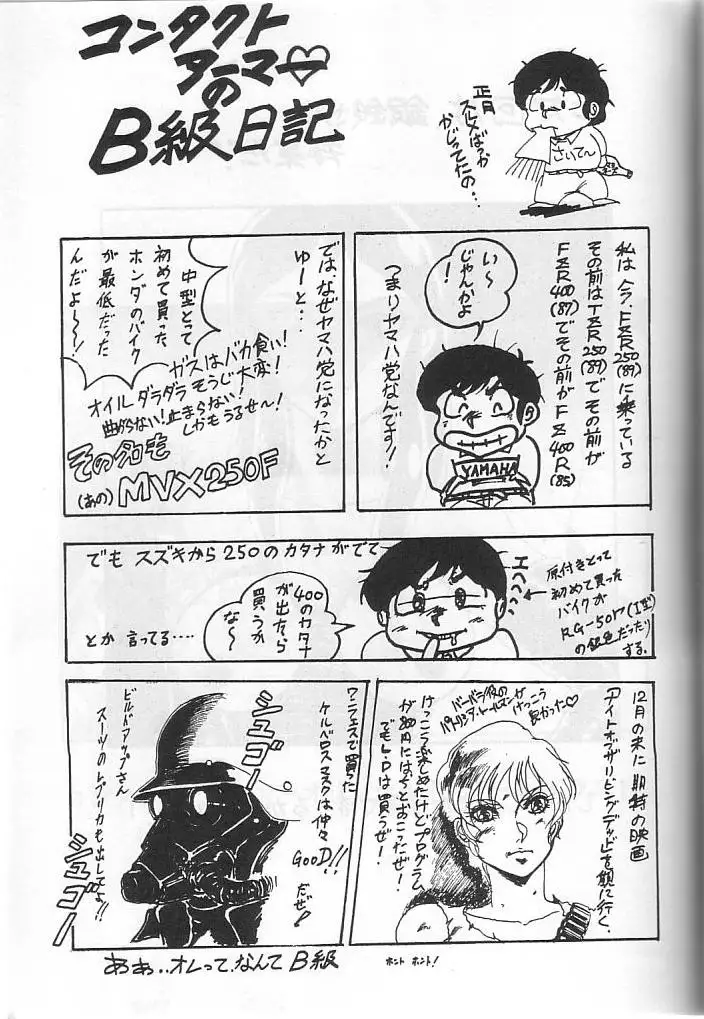 コンタクト
アーマー
の
B級日記
正月
スルメばっか
かじってたの…
さいてー
私は今、FZR250(89)に乗っている
その前はTZR250(89)でその前が
FZR400(87)でその前がFZ400R(85)
い〜
じゃんかよ
!
つまりヤマハ党なんです!
YAMAHA
では、なぜヤマハ党になったかと
ゆーと…
中型とって
初めて買った
ホンダのバイク
が最低だった
んだよ〜〜!
ガスはバカ食い!
オイルダラダラそうじ大変!
曲らない!止まらない!
しかもうるせ〜!
その名も
(あの)MVX250F
でもスズキから250のカタナがでて
400のカタナ
が出たら
買うか
な〜
とか言ってる….
エヘヘ
原付きとって
初めて買った
バイクが
RG-50Γ(I型)
の銀色だったり
する。
12月の末に期待の映画
「ナイトオブザリビングデッド」を観に行く、
バーバラ役の
パトリシア・トールマンが
けっこう
良かった♡
けっこう楽しめたけどプログラム
が800円にはちとおこったぜ!
でもLDは買うぜ!
ワンフェスで買った
ケルベロスマスクは仲々
GooD!!
だぜ!
シュゴー
ビルドアップさん
スーツのレプリカも出してよ!!
シュゴー
ああ..オレって、なんてB級
ホント ホント!